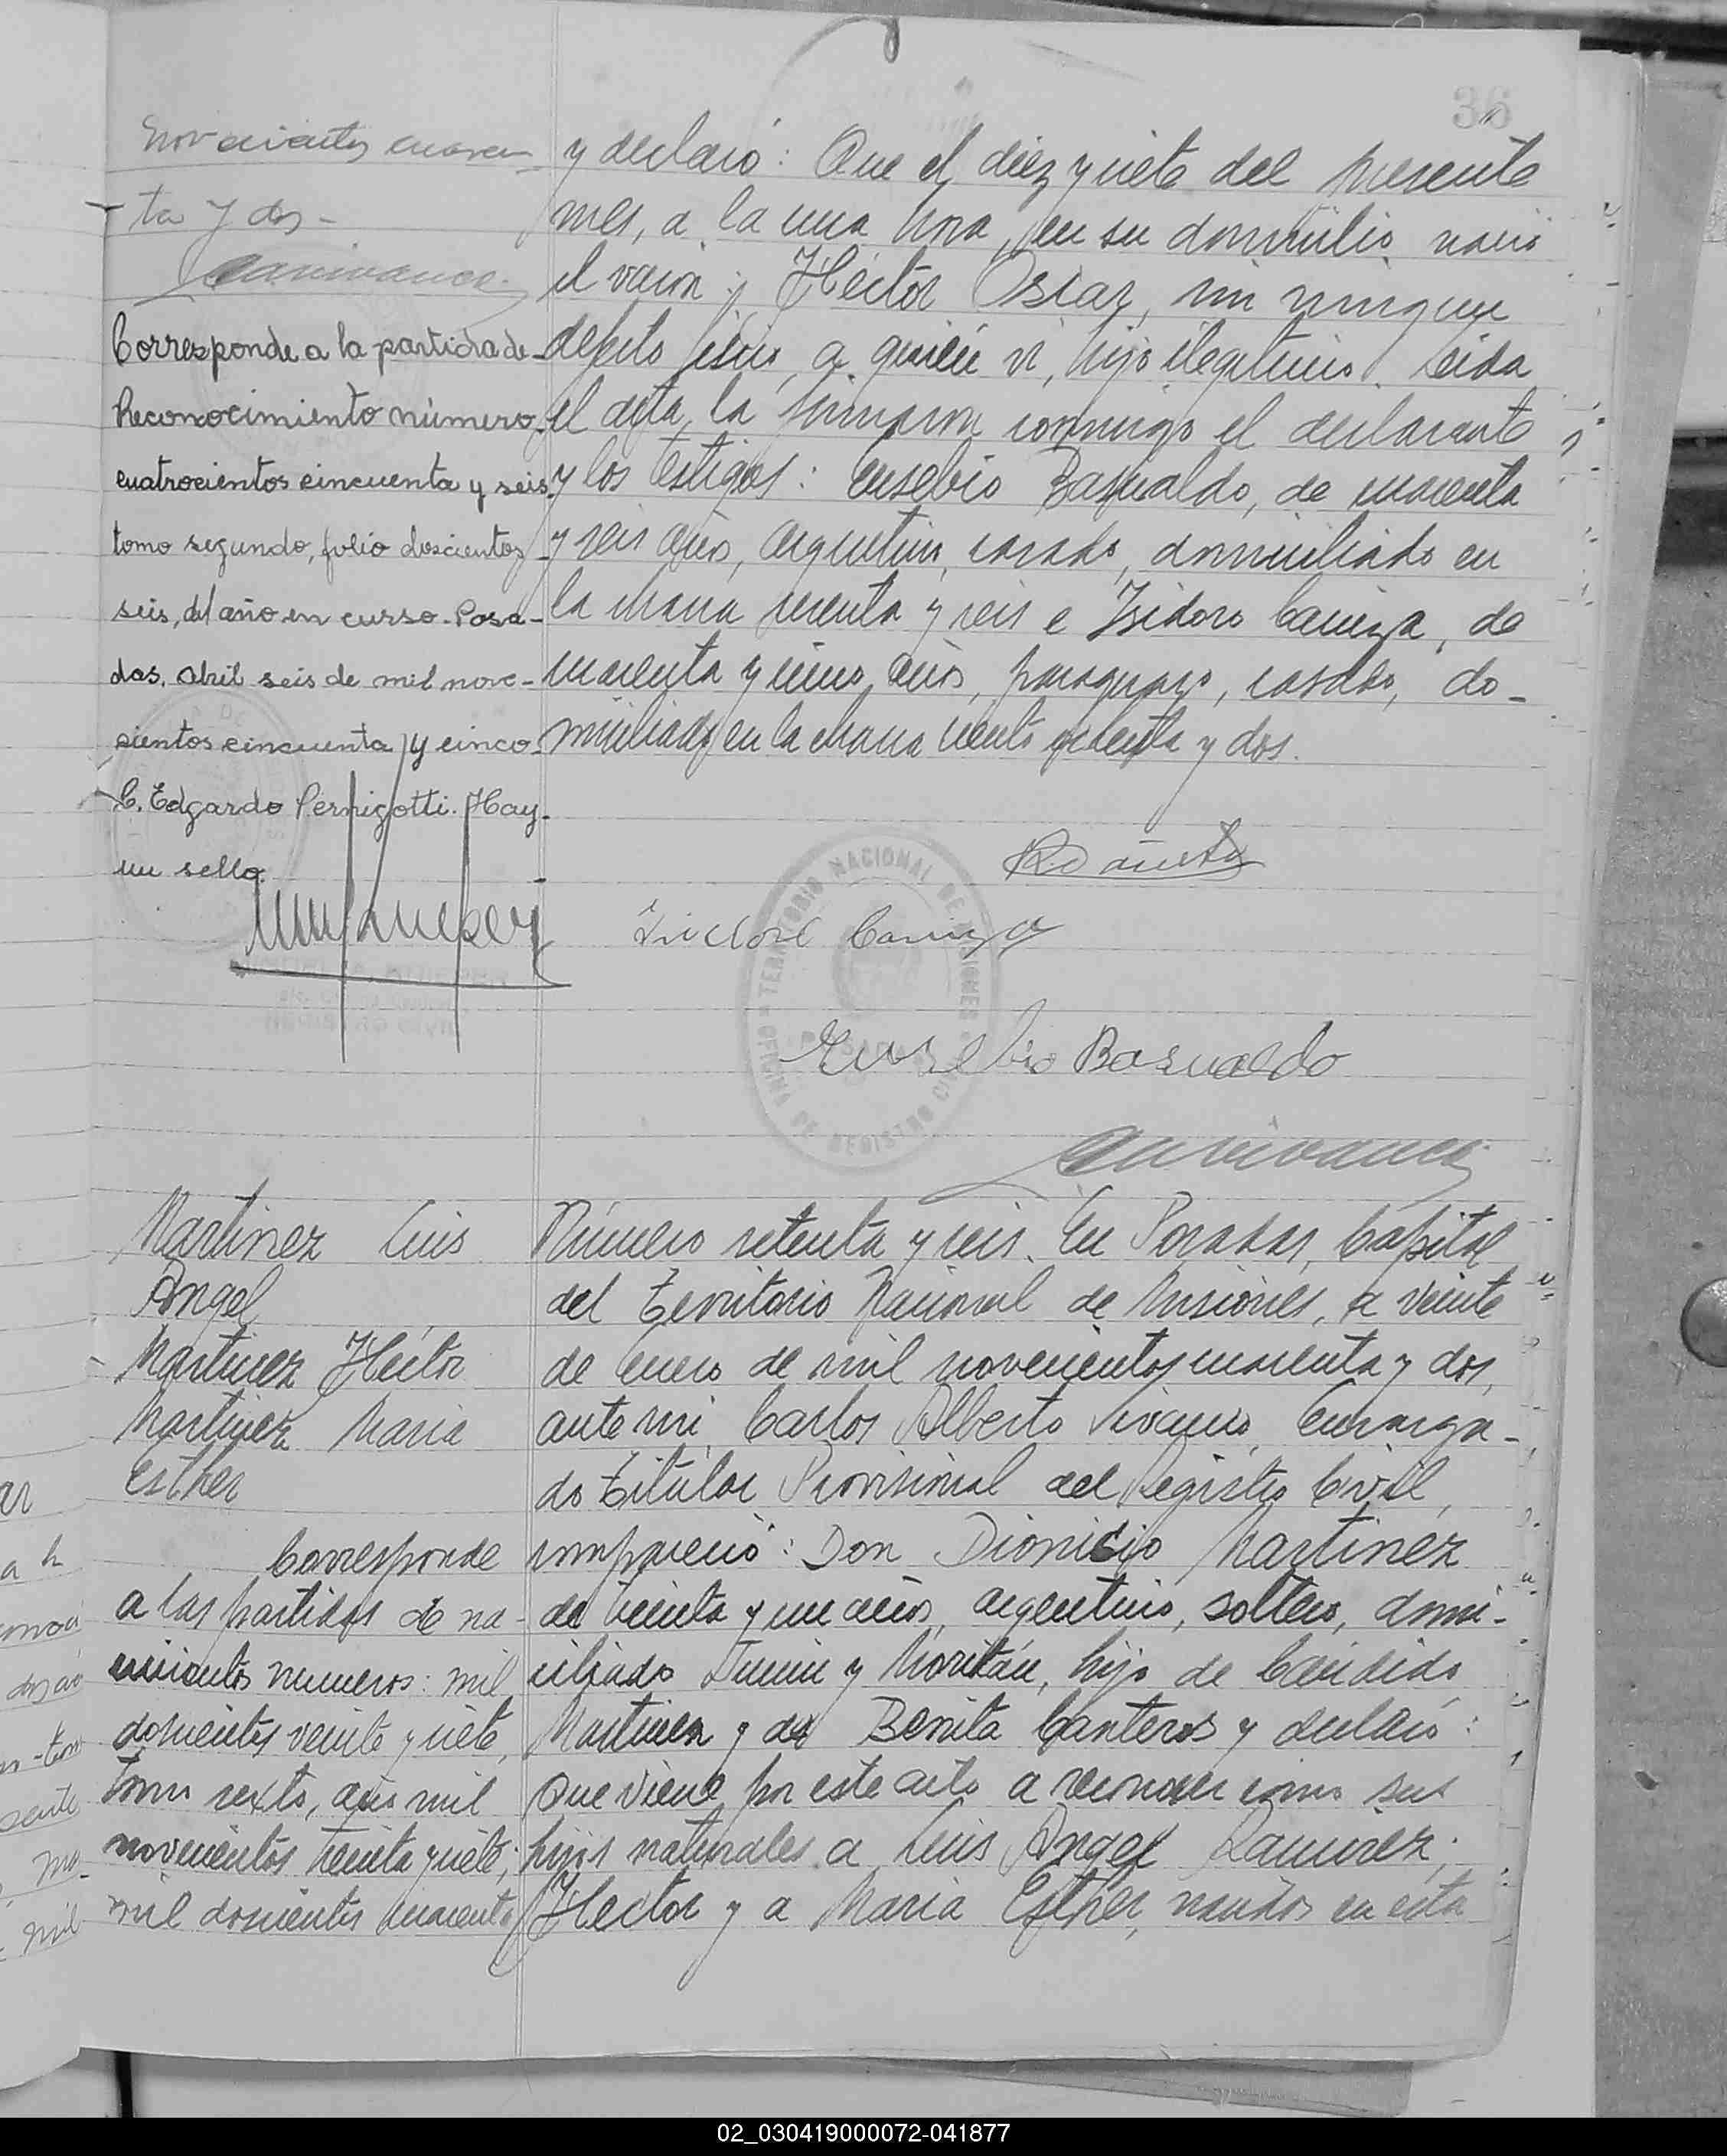 36
novecientos cuaren-
ta y dos -
CAVivanco.
Corresponde a la partida de
Reconocimiento número
cuatrocientos cincuenta y seis
tomo segundo, folio doscientos
seis, del año en curso. Posa-
das, abril seis de mil nove-
cientos cincuenta y cinco.
C. Edgardo Pernigotti. Hay
un sello.
y declaró: Que el diez y siete del presente
mes, a la una hora, en su domicilio nació
el varon: Héctor Oscar, sin ningun
defecto físico, a quién vi, hijo ilegítimo. Leída
el acta, la firmaron conmigo el declarante
y los testigos: Eusebio Basualdo, de cuarenta
y seis años, argentino, casado, domiciliado en
la chacra sesenta y seis e Isidoro Caniza, de
cuarenta y cinco años, paraguayo, casado, do-
miciliado en la chacra ciento ochenta y dos.
Isidoro Caniza
TERRITORIO NACIONAL DE MISIONES
POSADAS
OFICINA DE REGISTRO CIVIL
Eusebio Basualdo
CAVivanco
Martinez Luis
Angel
Martinez Héctor
Martinez Maria
Esther
Corresponde
a las partidas de na-
cimientos numeros: mil
doscientos veinte y siete,
tomo sexto, año mil
novecientos treinta y siete;
mil doscientos cuarenta
Número setenta y seis. En Posadas, Capital
del Territorio Nacional de Misiones, a veinte
de Enero de mil novecientos cuarenta y dos,
ante mi Carlos Alberto Vivanco, Encarga-
do Titular Provisional del Registro Civil,
compareció: Don Dionicio Martinez
de treinta y un años, argentino, soltero, domi-
ciliado Junin y Moritán, hijo de Candido
Martinez y de Benita Canteros y declaró:
Que viene por este acto a reconocer como sus
hijos naturales a Luis Angel Ramirez;
Hector y a Maria Esther, nacidos en esta
02_030419000072-041877